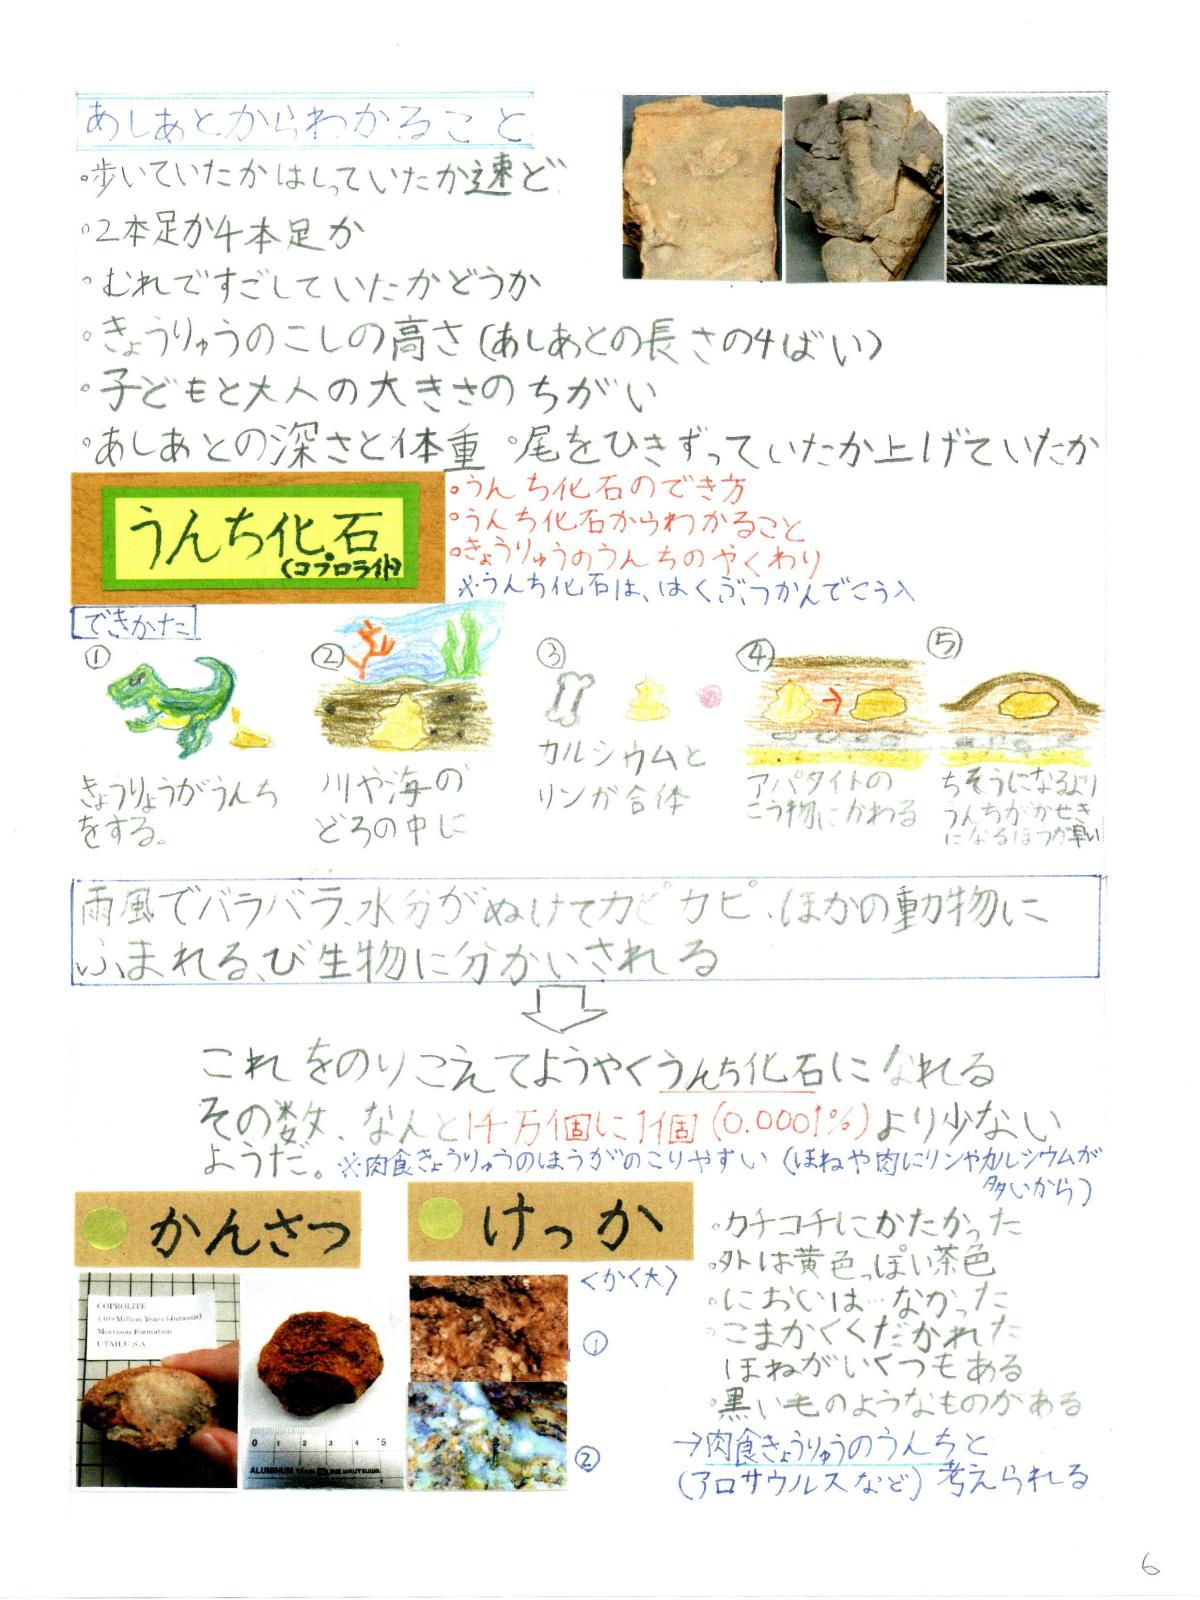 あしあとからわかること
・歩いていたかはしっていたか速ど
・2本足か4本足か
・むれですごしていたかどうか
・きょうりゅうのこしの高さ(あしあとの長さの4ばい)
・子どもと大人の大きさのちがい
・あしあとの深さと体重 ・尾をひきずっていたか上げていたか
うんち化石
(コプロライト)
・うんち化石のでき方
・うんち化石からわかること
・きょうりゅうのうんちのやくわり
※うんち化石は、はくぶつかんでこう入
できかた
①
きょうりょうがうんち
をする。
②
川や海の
どろの中に
③
カルシウムと
リンが合体
④
アパタイトの
こう物にかわる
⑤
ちそうになるより
うんちがかせき
になるほうが早い
雨風でバラバラ、水分がぬけてカピカピ、ほかの動物に
ふまれる、び生物に分かいされる
これをのりこえてようやくうんち化石になれる
その数、なんと1千万個に1個(0.0001%)より少ない
ようだ。※肉食きょうりゅうのほうがのこりやすい(ほねや肉にリンやカルシウムが
多いから)
かんさつ
COPROLITE
140+Million Years (Jurassic)
Morrison Formation
UTAH,U.S.A
0 1 2 3 4 5
けっか
<かく大>
①
②
・カチコチにかたかった
・外は黄色っぽい茶色
・においは…なかった
・こまかくくだかれた
ほねがいくつもある
・黒い毛のようなものがある
→肉食きょうりゅうのうんちと
(アロサウルスなど)考えられる
6